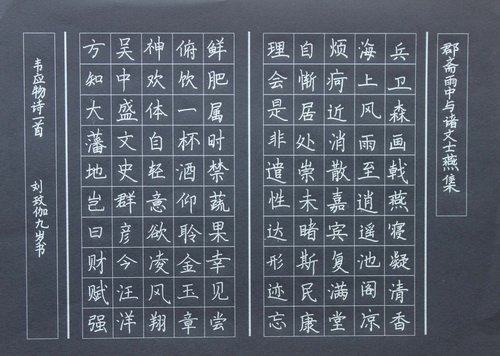 郡斋雨中与诸文士燕集
兵卫森画戟燕寝凝清香
海上风雨至逍遥池阁凉
烦疴近消散嘉宾复满堂
自惭居处崇未睹斯民康
理会是非遣性达形迹忘
鲜肥属时禁蔬果幸见尝
俯饮一杯酒仰聆金玉章
神欢体自轻意欲凌风翔
吴中盛文史群彦今汪洋
方知大藩地岂曰财赋强
韦应物诗一首 刘玫伽九岁书